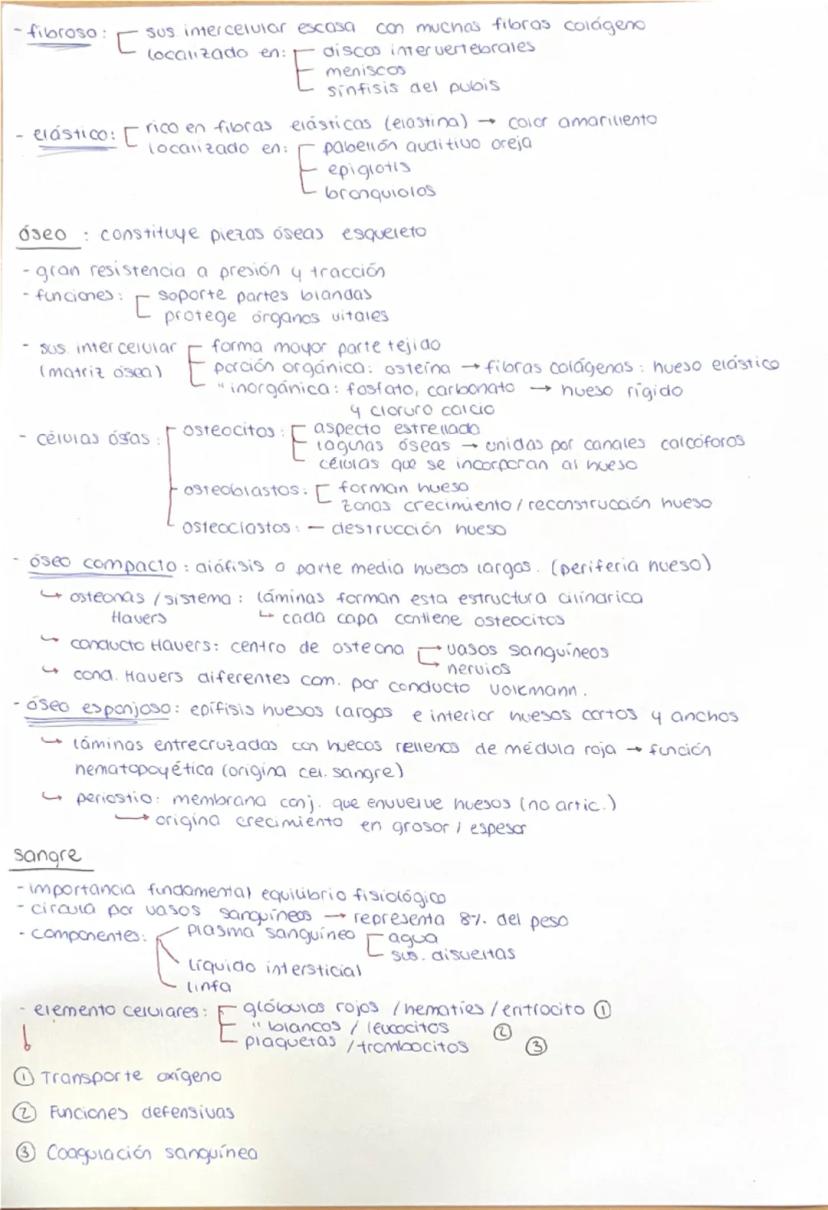 - fibroso: sus intercelular escasa con muchas fibras colágeno
localizado en: discos intervertebrales
meniscos
sínfisis del pubis
- elástico: rico en fibras elásticas (elastina) → color amarillento
localizado en: pabellón auditivo oreja
epiglotis
bronquiolos
óseo : constituye piezas óseas esqueleto
- gran resistencia a presión y tracción
- funciones: soporte partes blandas
protege órganos vitales
- sus. intercelular forma mayor parte tejido
(matriz ósea) porción orgánica: osteína → fibras colágenas: hueso elástico
" inorgánica: fosfato, carbonato → hueso rígido
y cloruro calcio
- células ósas: osteocitos: aspecto estrellado
lagunas óseas → unidas por canales calcóforos
células que se incorporan al hueso
osteoblastos: forman hueso
zonas crecimiento / reconstrucción hueso
osteoclastos: — destrucción hueso
- óseo compacto: diáfisis o parte media huesos largos. (periferia hueso)
↳ osteonas / sistema: láminas forman esta estructura cilíndrica
Havers ↳ cada capa contiene osteocitos
↳ conducto Havers: centro de osteona vasos sanguíneos
nervios
↳ cond. Havers diferentes com. por conducto Volkmann.
- óseo esponjoso: epífisis huesos largos e interior huesos cortos y anchos
↳ láminas entrecruzadas con huecos rellenos de médula roja → función
hematopoyética (origina cel. sangre)
↳ periostio: membrana conj. que envuelve huesos (no artic.)
↳ origina crecimiento en grosor / espesor
sangre
- importancia fundamental equilibrio fisiológico
- circula por vasos sanguíneos → representa 8% del peso
- componentes: plasma sanguíneo agua
sus. disueltas
líquido intersticial
linfa
- elemento celulares: glóbulos rojos / hematíes / eritrocito ①
" blancos / leucocitos ②
plaquetas / trombocitos ③
① Transporte oxígeno
② Funciones defensivas
③ Coagulación sanguínea